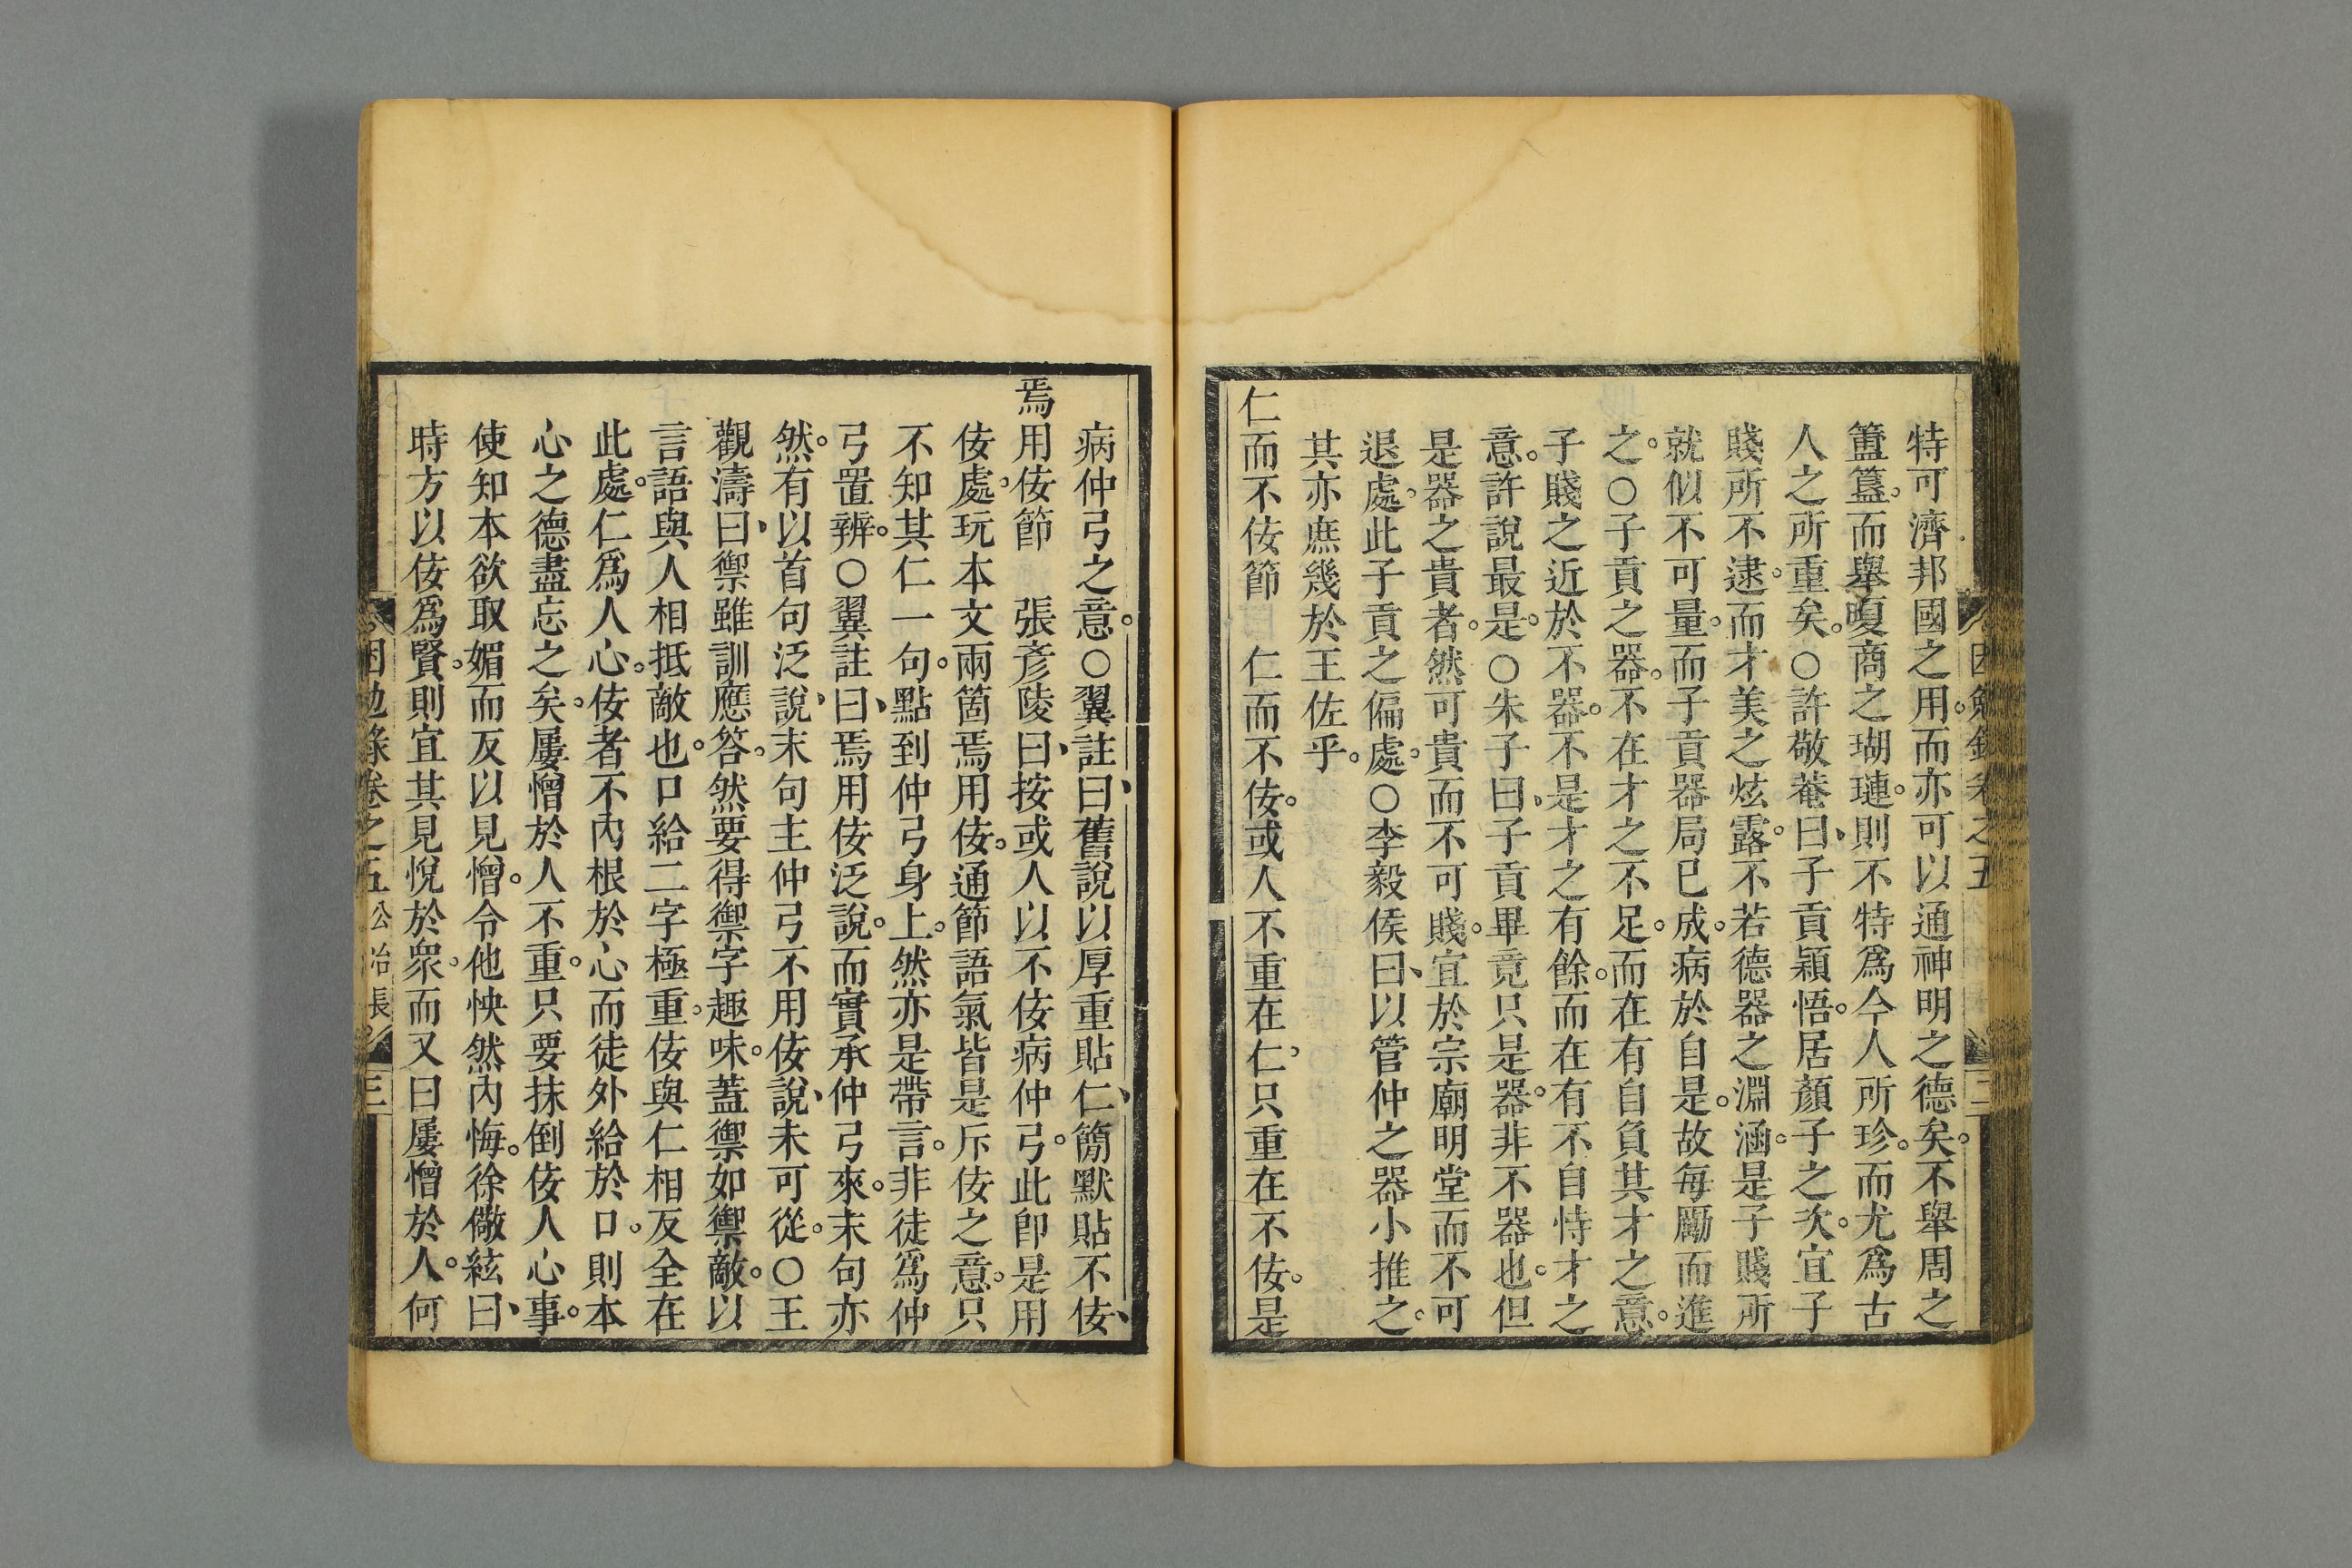 特可濟邦國之用。而亦可以通神明之德矣。不舉周之
簠簋。而舉夏商之瑚璉。則不特爲今人所珍。而尤爲古
人之所重矣。○許敬菴曰、子貢穎悟。居顏子之次。宜子
賤所不逮。而才美之炫露。不若德器之淵涵。是子賤所
就似不可量。而子貢器局已成。病於自是。故每勵而進
之。○子貢之器。不在才之不足。而在有自負其才之意。
子賤之近於不器。不是才之有餘。而在有不自恃才之
意。許說最是。○朱子曰、子貢畢竟只是器。非不器也。但
是器之貴者。然可貴而不可賤。宜於宗廟明堂而不可
退處。此子貢之偏處。○李毅侯曰、以管仲之器小推之。
其亦庶幾於王佐乎。
仁而不佞節　仁而不佞。或人不重在仁、只重在不佞。是
病仲弓之意。○翼註曰、舊說以厚重貼仁、簡默貼不佞、
焉用佞節　張彥陵曰、按或人以不佞病仲弓。此卽是用
佞處。玩本文兩箇焉用佞。通節語氣皆是斥佞之意。只
不知其仁一句。點到仲弓身上。然亦是帶言。非徒爲仲
弓置辨。○翼註曰、焉用佞泛說。而實承仲弓來。末句亦
然。有以首句泛說、末句主仲弓不用佞說、未可從。○王
觀濤曰、禦雖訓應答。然要得禦字趣味。蓋禦如禦敵。以
言語與人相抵敵也。口給二字極重。佞與仁相反全在
此處。仁爲人心。佞者不內根於心而徒外給於口。則本
心之德盡忘之矣。屢憎於人不重。只要抹倒佞人心事。
使知本欲取媚而反以見憎。令他怏然內悔。徐儆絃曰、
時方以佞爲賢。則宜其見悅於衆。而又曰屢憎於人。何
困勉錄卷之五 公冶長。 三